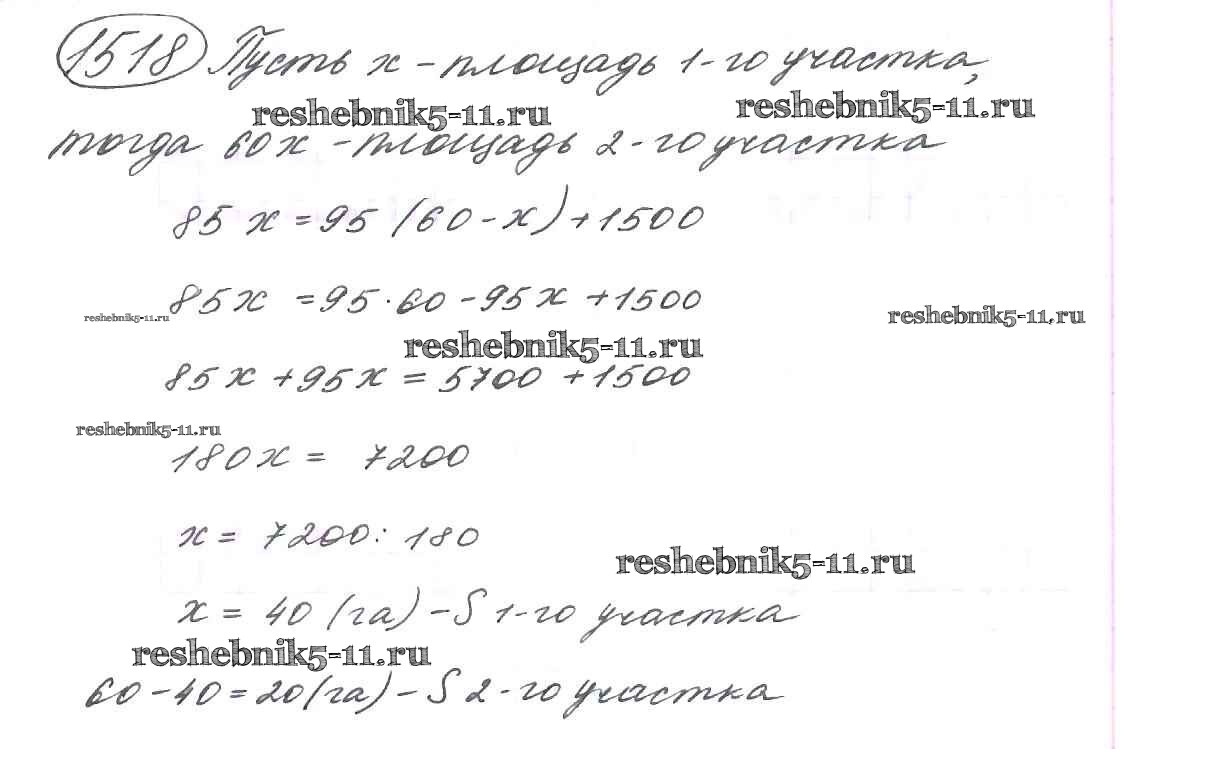 1518 Пусть x - площадь 1-го участка,
reshebnik5-11.ru reshebnik5-11.ru
тогда 60x - площадь 2-го участка
85x = 95(60-x)+1500
85x = 95·60-95x+1500
reshebnik5-11.ru reshebnik5-11.ru
reshebnik5-11.ru
85x+95x = 5700+1500
reshebnik5-11.ru
180x = 7200
x = 7200:180
reshebnik5-11.ru
x = 40 (га) - S 1-го участка
reshebnik5-11.ru
60-40=20(га)-S 2-го участка